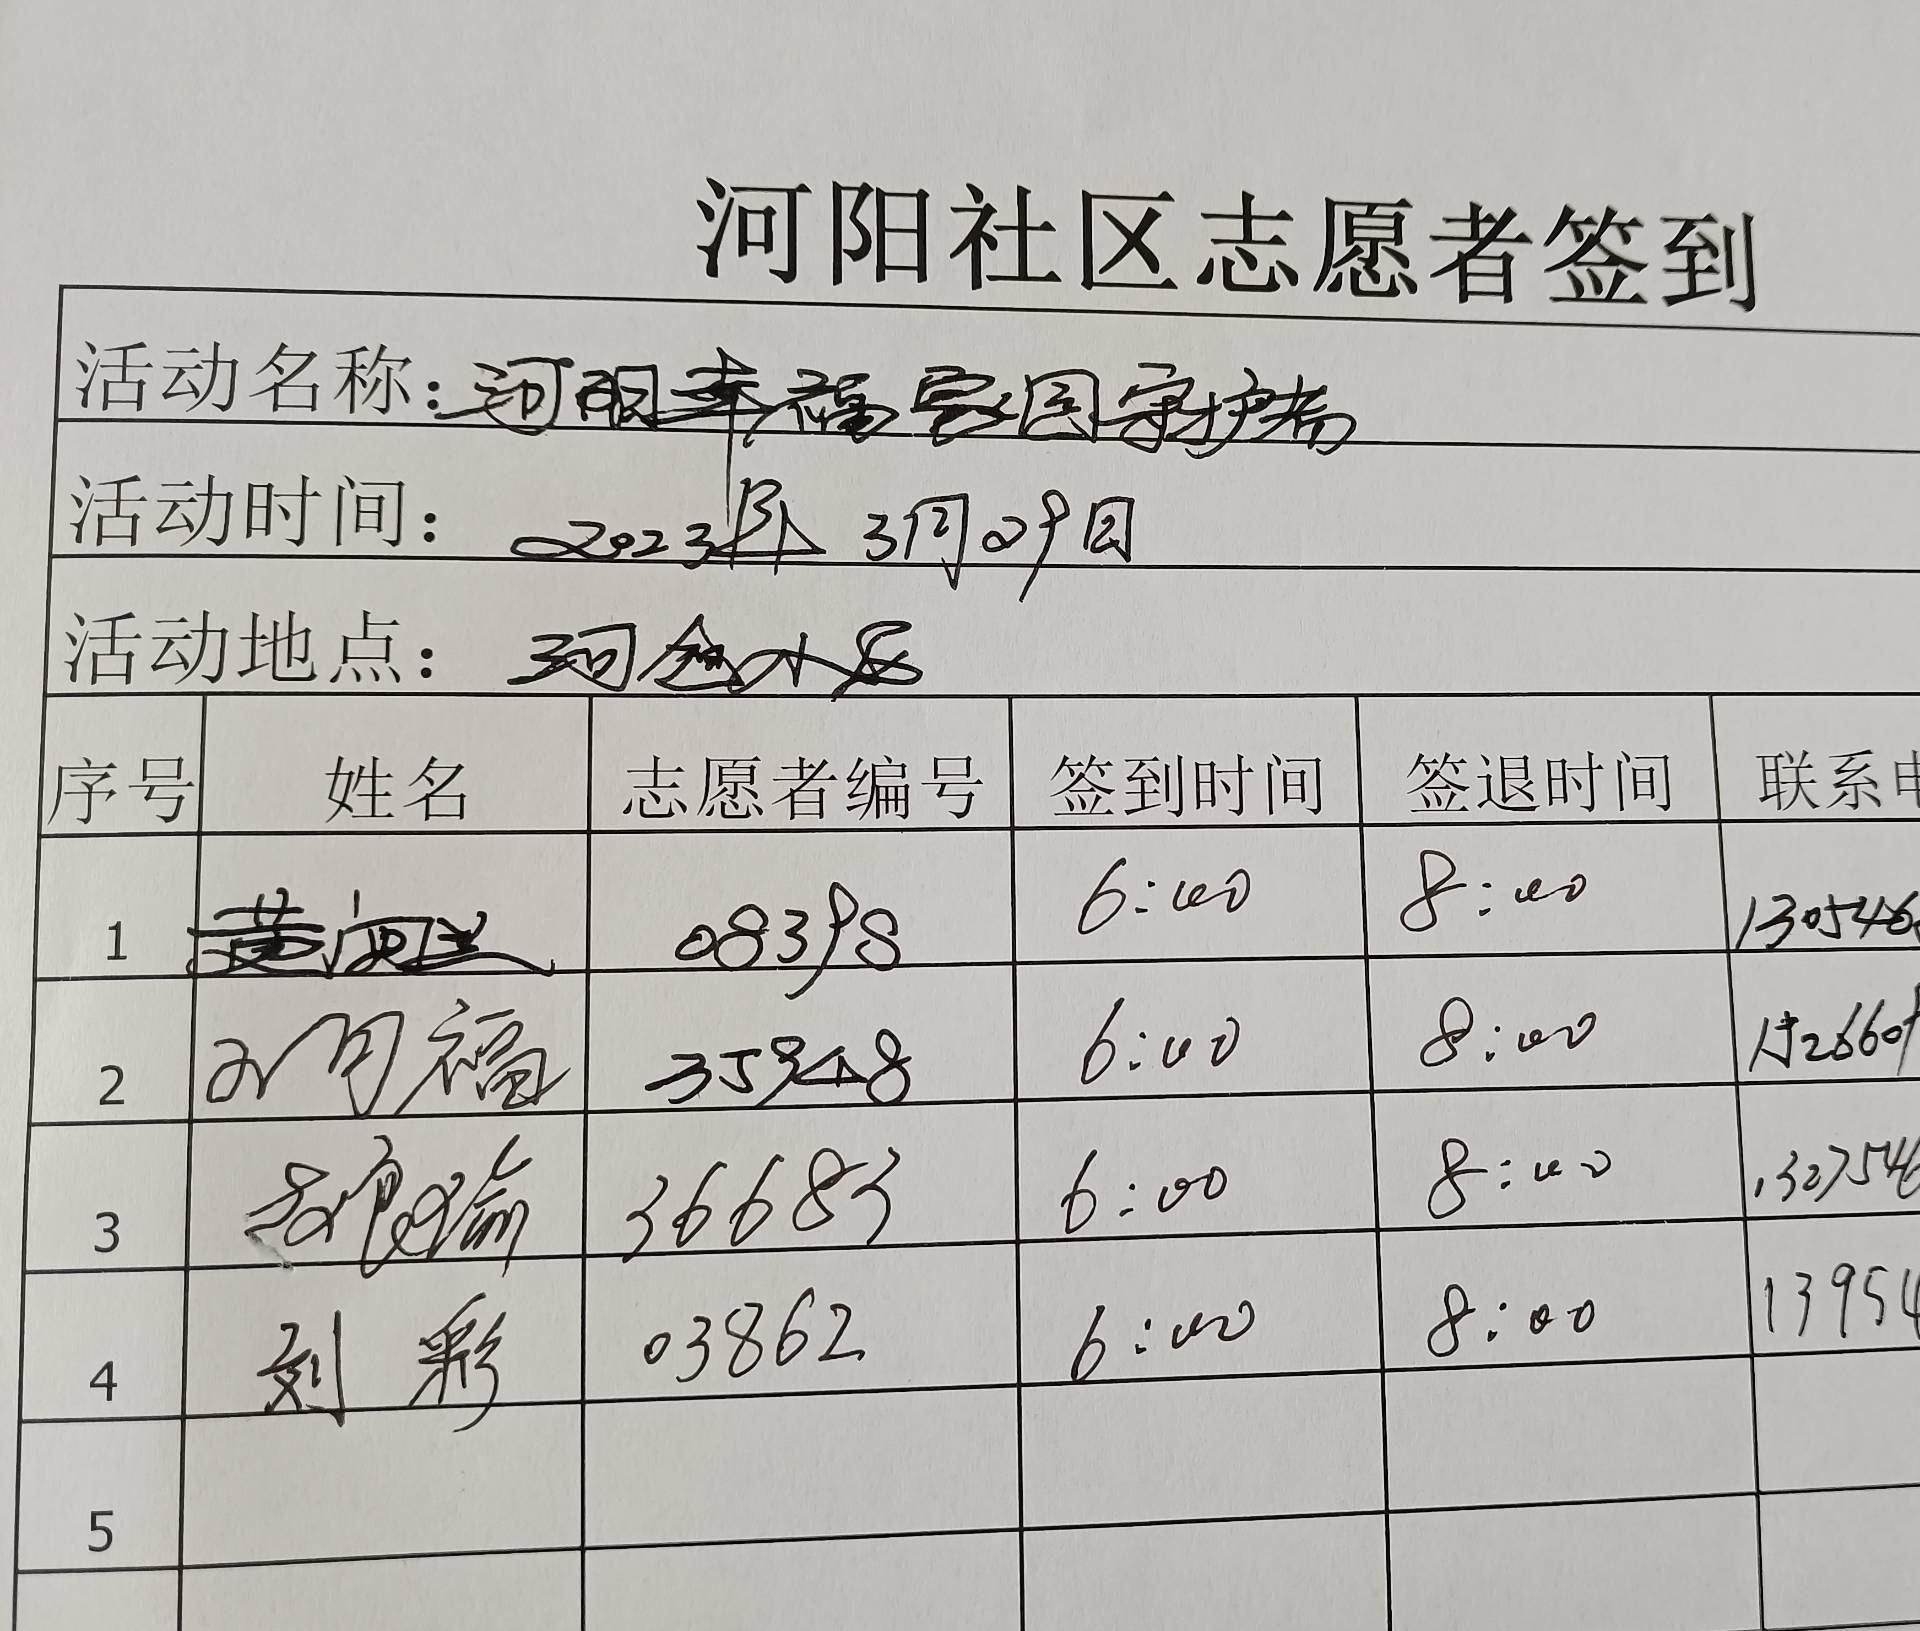 河阳社区志愿者签到
活动名称：河阳幸福家园守护者
活动时间：2023年3月09日
活动地点：河 小区
序号 姓名 志愿者编号 签到时间 签退时间 联系
1 黄 08398 6:00 8:00 130546
2 福 35948 6:00 8:00 152660
3 36683 6:00 8:00 1327546
4 刘彩 03862 6:00 8:00 13954
5